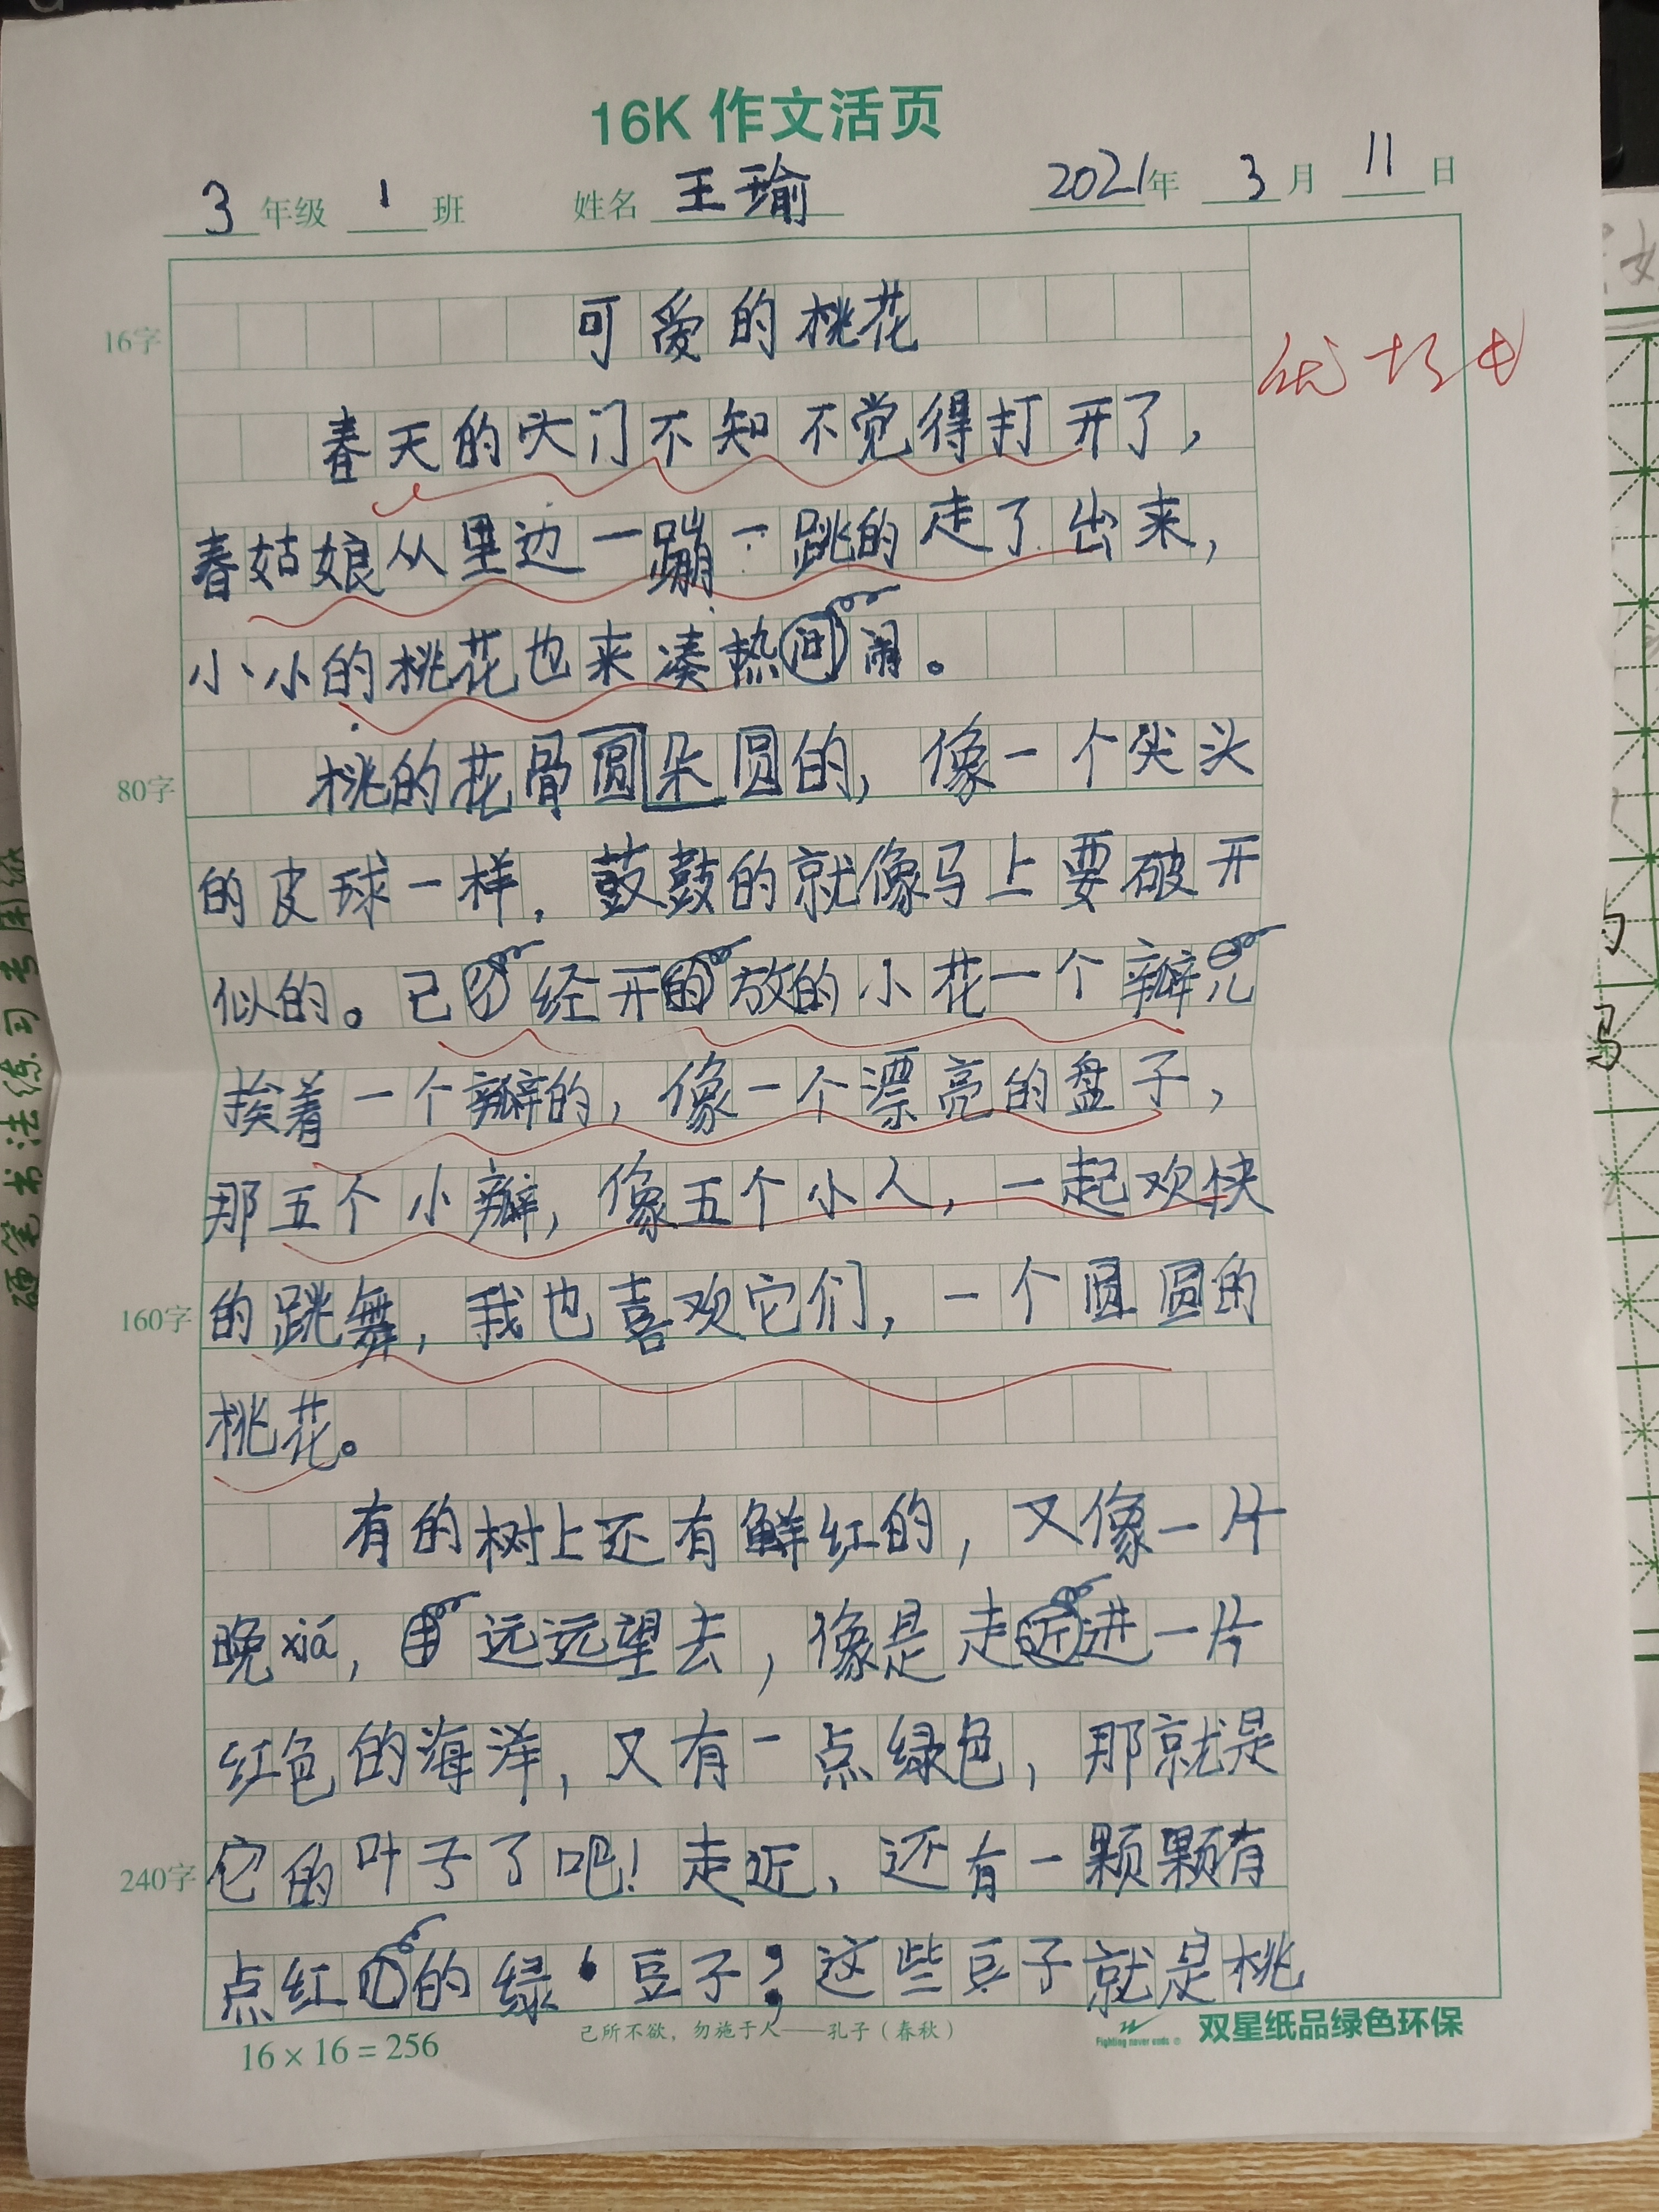 16K 作文活页
3 年级 1 班 姓名 王瑜 2021年 3 月 11 日
可爱的桃花
16字
优
春天的大门不知不觉得打开了，
春姑娘从里边一蹦一跳的走了出来，
小小的桃花也来凑热闹。
桃的花骨圆朵圆的，像一个尖头
80字
的皮球一样，鼓鼓的就像马上要破开
似的。已经开放的小花一个瓣儿
挨着一个瓣的，像一个漂亮的盘子，
那五个小瓣，像五个小人，一起欢快
的跳舞，我也喜欢它们，一个圆圆的
160字
桃花。
有的树上还有鲜红的，又像一片
晚xiá，远远望去，像是走进一片
红色的海洋，又有一点绿色，那就是
它的叶子了吧！走近，还有一颗颗有
240字
点红的绿豆子；这些豆子就是桃
16×16=256
己所不欲，勿施于人——孔子（春秋）
Fighting never ends
双星纸品绿色环保
硬笔书法练习专用纸